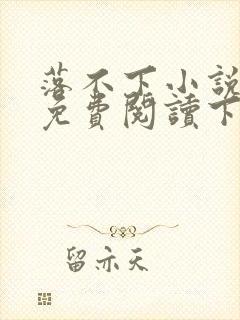 落不下小説
免費閱讀下
留亦天